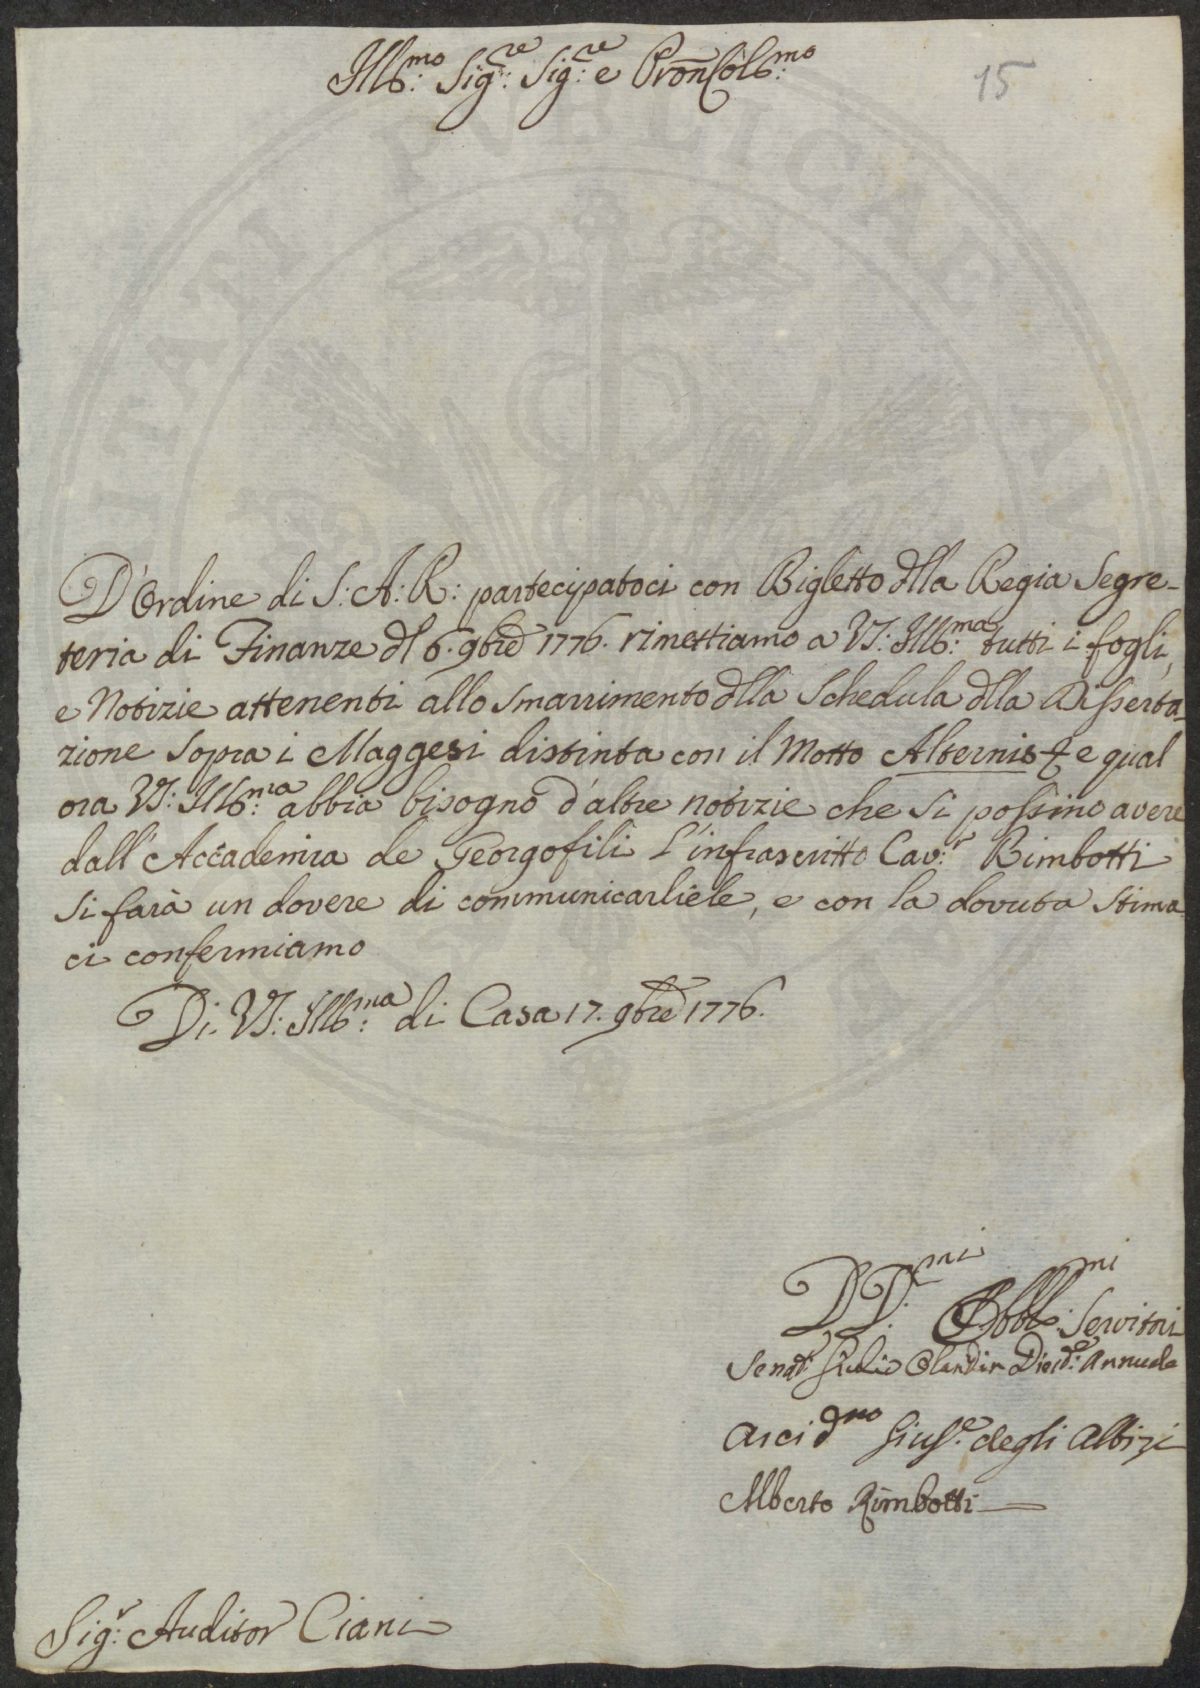 15
Ill.mo Sig.re Sig.re e Pron Col.mo
D'Ordine di S: A: R: partecipatoci con Biglietto dlla Regia Segre-
teria di Finanze dl 6. 9bre 1776. rimettiamo a VS: Ill:ma tutti i fogli,
e Notizie attenenti allo smarrimento dlla Schedula dlla Disserta-
zione sopra i Maggesi distinta con il Motto Alternis & e qual
ora VS: Ill:ma abbia bisogno d'altre notizie che si possino avere
dall'Accademia de Georgofili l'infrascritto Cav:r Rimbotti
si farà un dovere di communicarliele, e con la dovuta stima
ci confermiamo
Di VS: Ill:ma di Casa 17. 9bre 1776.
DD:mi Obbl:mi Servitori
Senat: Giulio Presid:e Annuale
Arcid:no Gius:e degli Albizi
Alberto Rimbotti
Sig:r Auditor Ciani
PUBLICAE